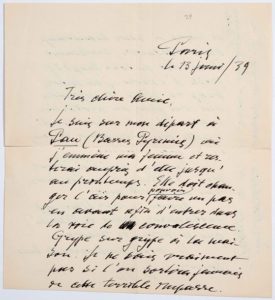 Paris
le 13 janv/39
Très chère Amie,
je suis sur mon départ à
Pau (Basses Pyrénées) où
j'emmène ma femme et res-
terai auprès d'elle jusqu'
au printemps. Elle doit chan-
ger l'air pour pouvoir faire un pas
en avant afin d'entrer dans
la voie de convalescence.
Grippe sur grippe à la mai-
son. Je ne sais vraiment
pas si l'on sortira jamais
de cette terrible impasse.